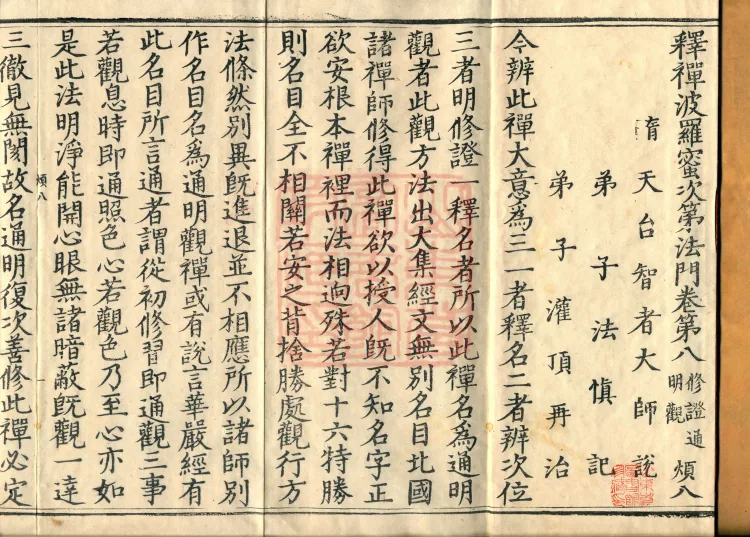 釋禪波羅蜜次第法門卷第八 修證通明觀 煩八
隋 天台智者大師 說
弟子法慎 記
弟子灌頂再治
今辨此禪大意為三一者釋名二者辨次位
三者明修證一釋名者所以此禪名為通明
觀者此觀方法出大集經文無別名目北國
諸禪師修得此禪欲以授人旣不知名字正
欲安根本禪裡而法相逈殊若對十六特勝
則名目全不相關若安之背捨勝處觀行方
法條然別異旣進退並不相應所以諸師別
作名目名為通明觀禪或有說言華嚴經有
此名目所言通者謂從初修習即通觀三事
若觀息時即通照色心若觀色乃至心亦如
是此法明淨能開心眼無諸暗蔽旣觀一達
煩八 一
三徹見無閡故名通明復次善修此禪必定